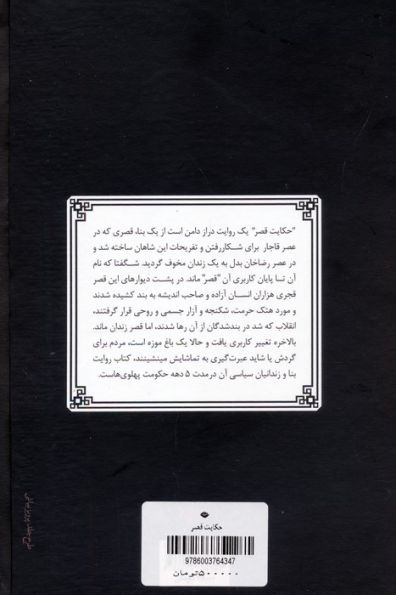 "حکایت قصر" یک روایت دراز دامن است از یک بنا، قصری که در
عصر قاجار برای شکاررفتن و تفریحات این شاهان ساخته شد و
در عصر رضاخان بدل به یک زندان مخوف گردید. شگفتا که نام
آن تا پایان کاربری آن "قصر" ماند. در پشت دیوارهای این قصر
قجری هزاران انسان آزاده و صاحب اندیشه به بند کشیده شدند
و مورد هتک حرمت، شکنجه و آزار جسمی و روحی قرار گرفتند،
انقلاب که شد در بندشدگان از آن رها شدند، اما قصر زندان ماند.
بالاخره تغییر کاربری یافت و حالا یک باغ موزه است، مردم برای
گردش یا شاید عبرت‌گیری به تماشایش مینشینند، کتاب روایت
بنا و زندانیان سیاسی آن درمدت ۵ دهه حکومت پهلوی‌هاست.
حکایت قصر
9786003764347
۵۰۰۰۰۰تومان